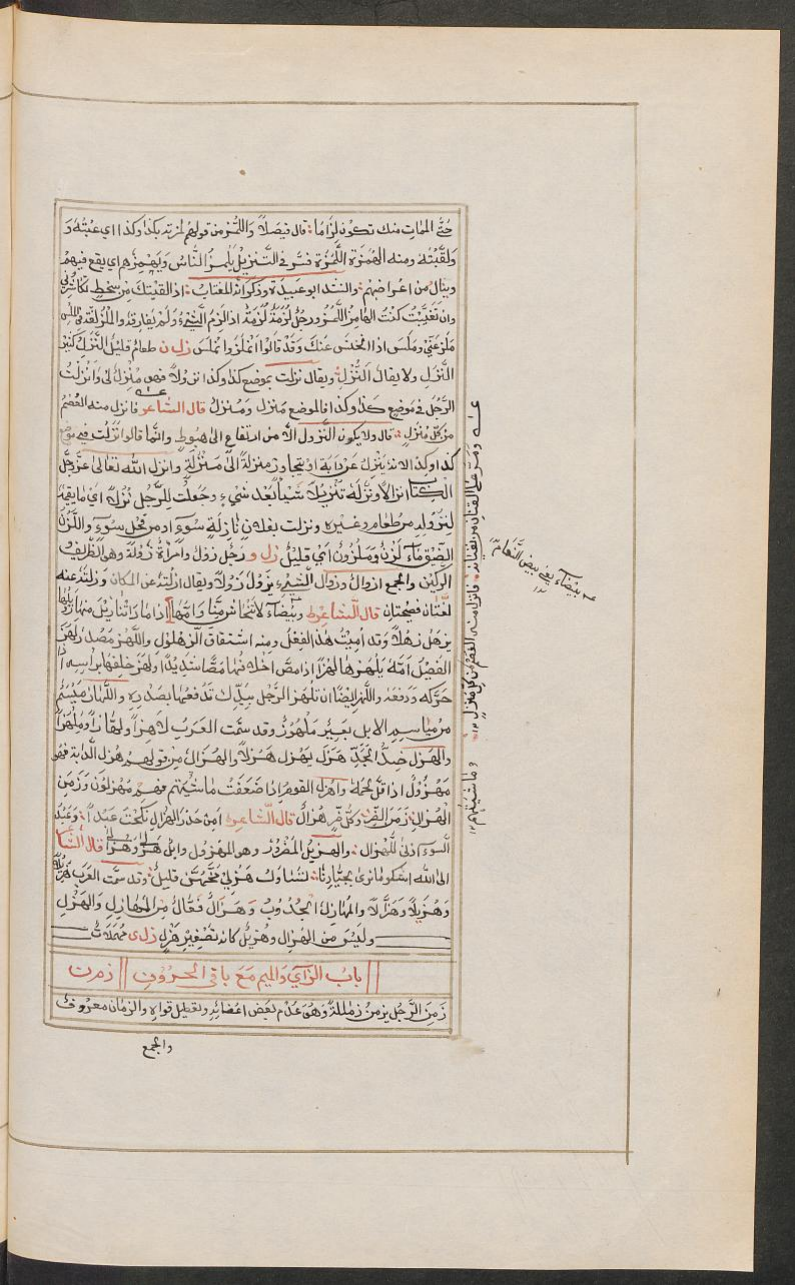 حُمُّ الممات منك تكون لِزَامًا: قال فيصلًا وَاللَّمْز من قولهم لمزته بكذا وكذا اي عبتُهُ وَ
وَلَقَّبْتُهُ ومنه الهُمَزَة اللُّمَزَة فسّر في التَّنزيل يَلْمِزُ النَّاسَ وَيَهْمِزُهم اي يقع فيهم
وينال من اعراضهم: وانشد ابو عبيدة وذكر انه المغتاب: اذا لقيتك من سخط تكاشرني
وان تغيّبت كنتَ الهَامِزَ اللُّمَزَه ورجلٌ لُزَمَةٌ لُزَمَةٌ اذا لزم الشيءَ ولم يفارقه والملز لغة في الملس
مَلَزَ عَنّي وَمَلَسَ اذا انخنس عنك وَقَدْ قالوا انْمَلَزَ وانْمَلَسَ زل ن طعامٌ قليلُ النُّزُلِ كثيرُ
النُّزُلِ ولا يقال النُّزْلِ ويقال نزلت بموضع كذا وكذا نزولًا فهو منزل لي وَانْزَلْتُ
الرَّجُل في موضع كذا وكذا فالموضع مَنزل وَمُنزَلٌ قال الشاعر فانزل منه العُصْمَ
من كلّ مُنزَلِ: قال ولا يكون النُّزول الّا من ارتفاع الى هبوط وانّما قالوا نزلت فيه موضع
كذا وكذا لانه ينزل عن دابة اذ يتجاوز منزلةً الى مَنْزِلَةٍ وانزل الله تعالى عزّ وجلّ
الكتابَ انزالًا ونزّله تَنْزِيلًا شيأً بَعْد شيءٍ وجعلتُ للرَّجُل نُزُلَهُ اي ما يقيمه
لنزوله من طعام وغيره ونزلت بفلان نازلة سوءٍ او من فِعْلِ سوءٍ وَاللَّزَنُ
الضِّيق ماءٌ لَزْنٌ وملزون اي قليلٌ زل و رجل زَوْلٌ وامرأة زَوْلَة وهو الظَّريف
الركين والجمع ازوال وزوال الشيء يزول زوالًا ويقال ازلته عن المكان وزلته عنه
لغتان فصيحتان قال الشاعر وبيضاءَ لا تنحاش منّا وامّها اذا ما راتنا زيل منها زويلها
يزهل زهلًا وقد اميت هذا الفعل ومنه اشتقاق الزهلول واللَّهْز مصدر لَهَزَ
الفصيل امّه يلهزها لهزًا اذا مصّ اخلافها مصًّا شديدًا ولهز خلفها براسه اذا
حرّكه ودفعه واللهز ايضًا ان تلهز الرَّجل بيدك تدفعها بصدره واللِّهاز مِيسَم
من مياسم الابل بعير مَلْهُوز وقد سمّت العرب لاهزًا ولهّازًا ومُلْهِزًا
والهزل ضدّ الجدّ هَزَل يهزل هَزْلًا والهُزَالُ من قولهم هُزِل الدابة فهو
مَهْزُولٌ اذا قلّ لحمه واهزل القوم اذا ضعفت ماشيتهم فهم مُهْزِلون وَزَمَنُ
الهُزَالِ زَمَن وكلّ هزال قال الشاعر امن حذر الهزال نكحت عبدًا: وَعَبْد
السوء ادنى للهُزَال: والهزيل المفزور وهو المهزول وابل هَزلى قال الشا
الى الله اشكو ما نرى بجيادنا: تساوك هَزْلى مُخُّهُنَّ قليل: وقد سمّت العرب هُزَيْلة
وَهُزَيلًا وَهَزَّالًا والمهازل الجدوبُ وهَزّالٌ فعّال من المهازل والهَزْل
وليس من الهزال وهُزَيْل كانه تصغير هَزْل زل ى مهملات
باب الزاي والميم مع باقي الحروف ز م ن
زَمِنَ الرَّجُل يزمن زمانةً وَهُوَ عُدْم بعض اعضائه وتعطيل قواه والزمان معروف
والجمع
عـه ومرّ على القنان من نفيانه فانزل منه العصم من كل منزل ١٢
عـه بيضاء يعني بيض النَّعام ١٢
وماشيتهم ١٢